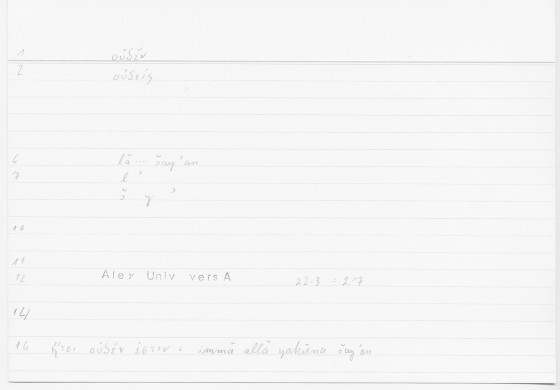 1 οὐδέν
2 οὐδείς
6 lā ... šayʾan
7 l ʾ
š y ʾ
10
11
12 Alex Univ vers A 22.3 = 27
14
16 ἤτοι οὐδέν ἐστιν : immā allā yakūna šayʾan